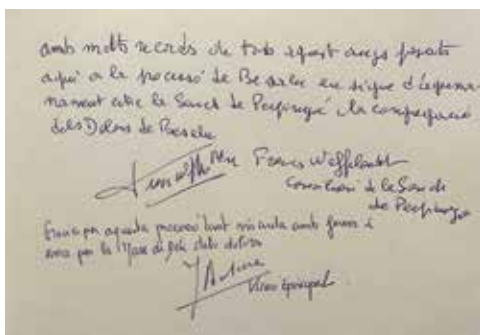 amb molts records de tots aquest anys passats
aquí a la processó de Besalú en signe d'agerma-
nament entre la Sanch de Perpinyà i la congregació
dels Dolors de Besalú
Francis
Conseller de la Sanch
de Perpinyà
Gràcies per aquesta processó tant viscuda amb fervor i
amor per la Mare de Déu dels dolors
Vicari episcopal.